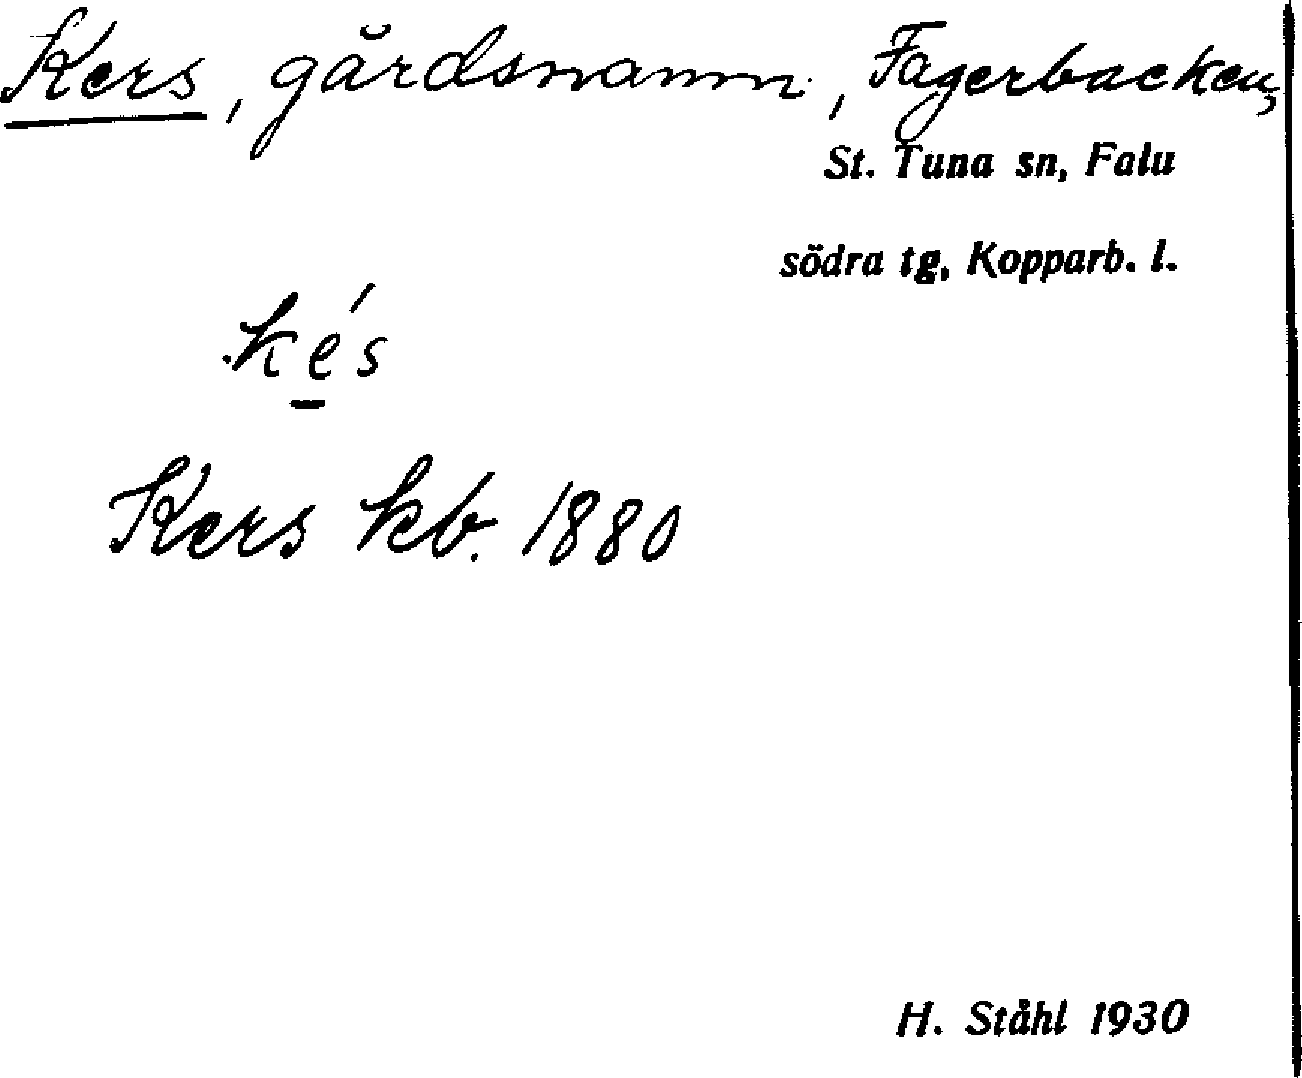 Kers, gårdsnamn, Fagerbacken,
St. Tuna sn, Falu
södra tg, Kopparb. l.
kę́s
Kers kb. 1880
H. Ståhl 1930